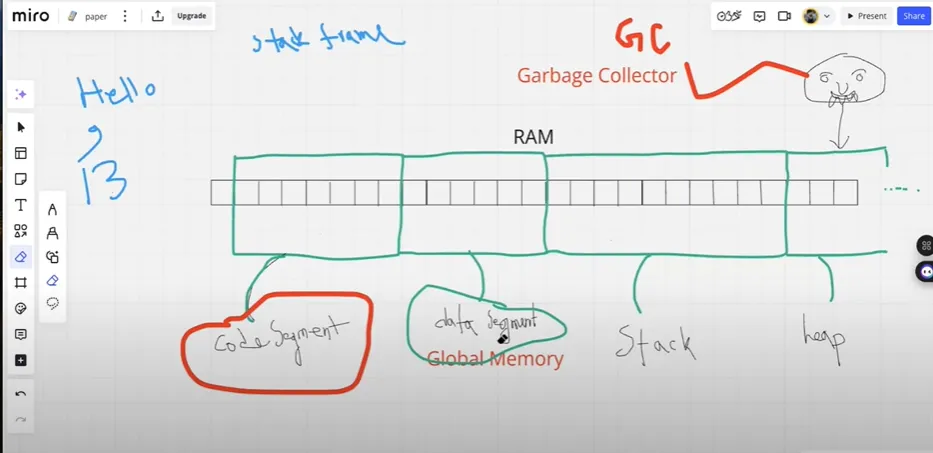 miro paper Upgrade Present Share
stack frame
GC
Garbage Collector
Hello
,
13
RAM
code segment
data segment
Global Memory
Stack
heap